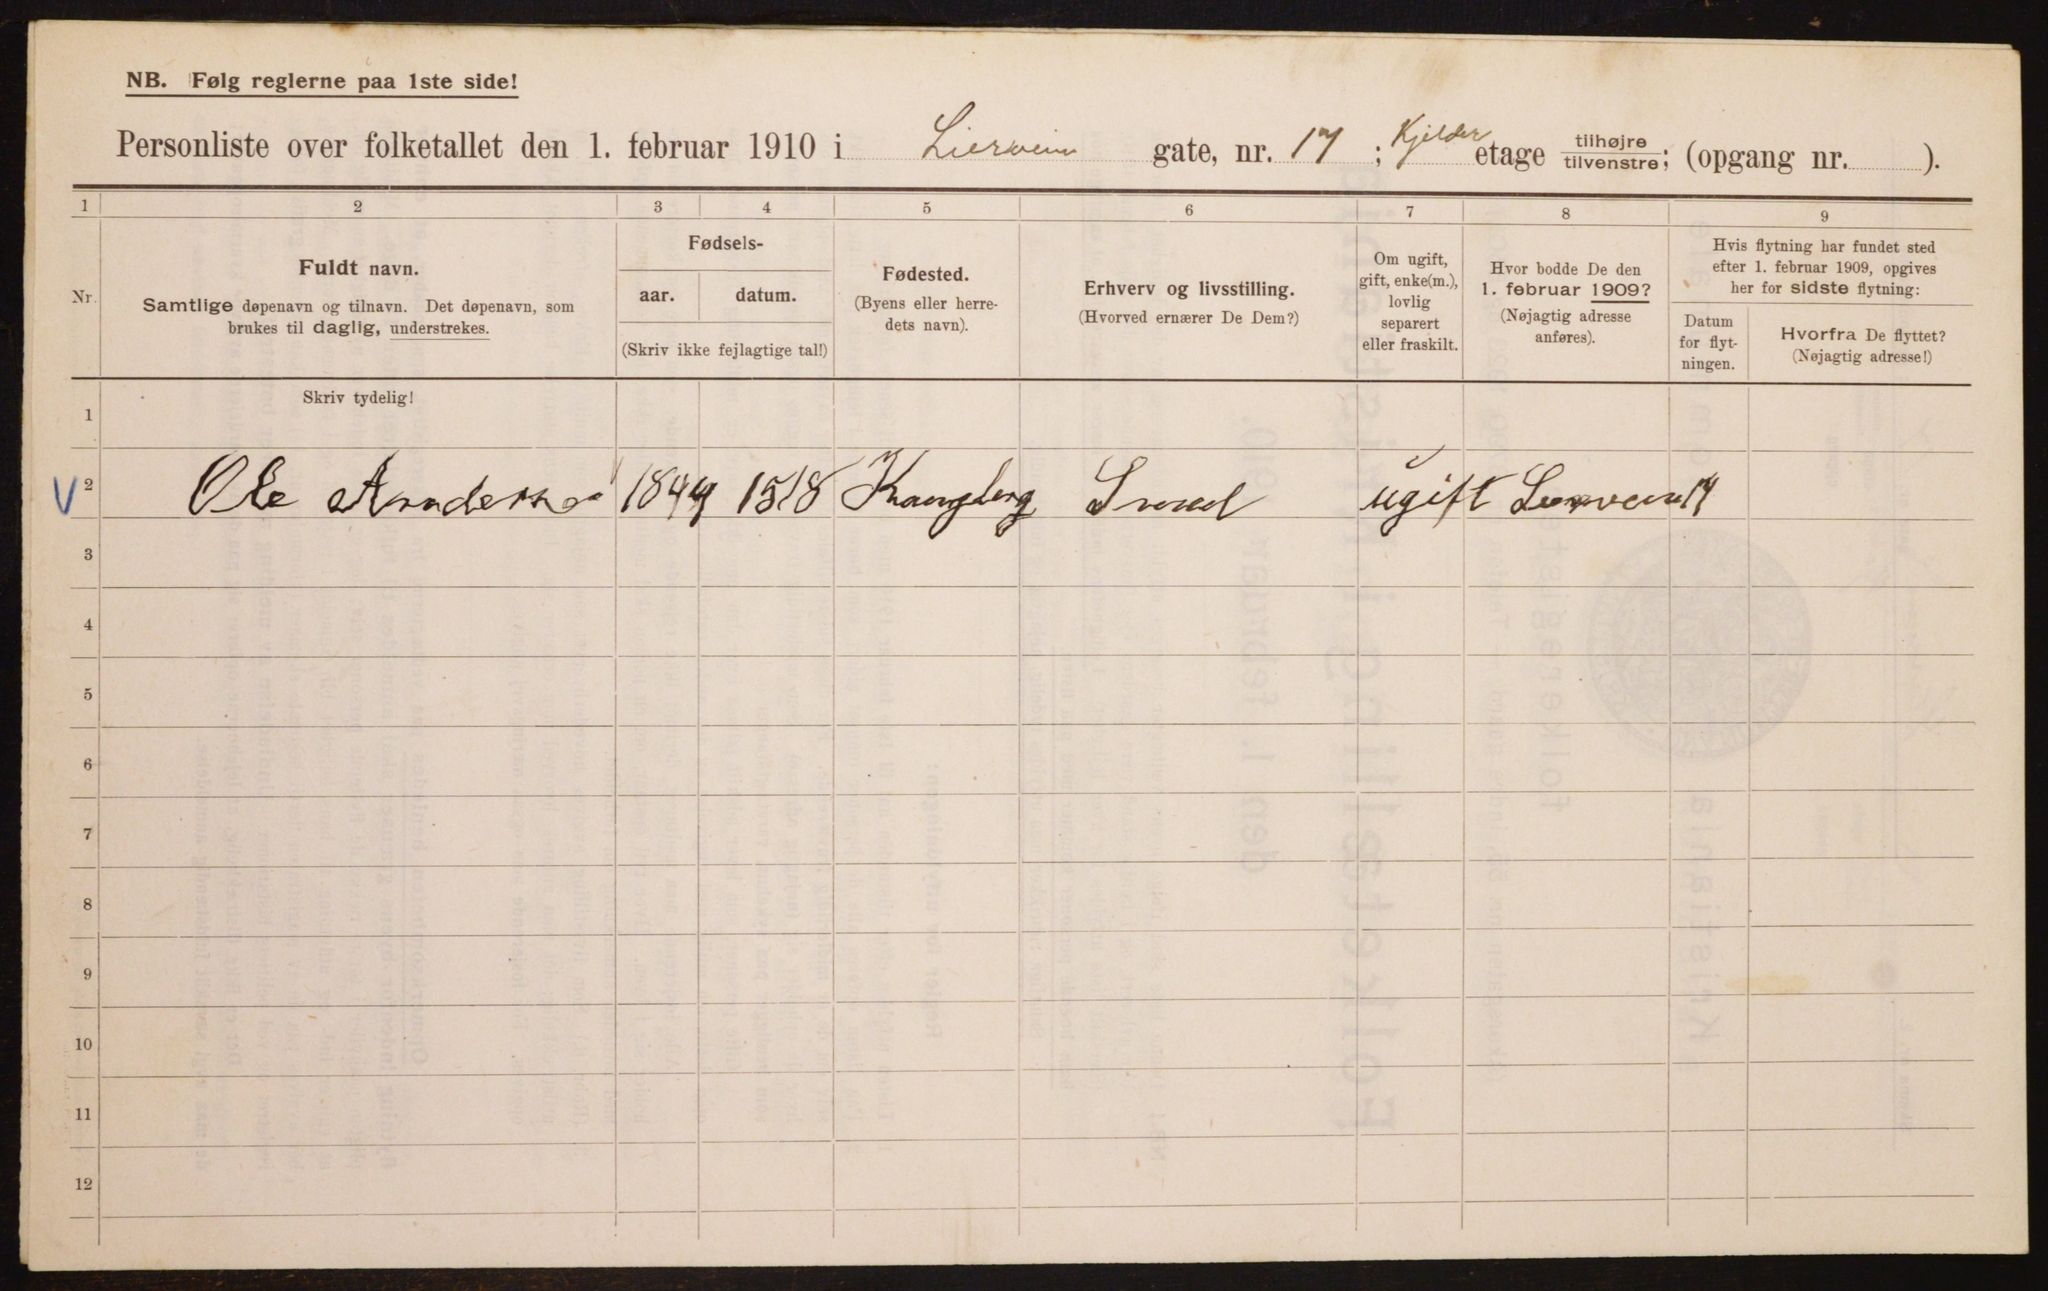 NB. Følg reglerne paa 1ste side!
Personliste over folketallet den 1. februar 1910 i Lierveien gate, nr. 17; Kjelder etage tilhøjre tilvenstre; (opgang nr. ).
1 2 3 4 5 6 7 8 9
Nr.
Fuldt navn.
Samtlige døpenavn og tilnavn. Det døpenavn, som
brukes til daglig, understrekes.
Fødsels-
aar. datum.
(Skriv ikke fejlagtige tal!)
Fødested.
(Byens eller herre-
dets navn).
Erhverv og livsstilling.
(Hvorved ernærer De Dem?)
Om ugift,
gift, enke(m.),
lovlig
separert
eller fraskilt.
Hvor bodde De den
1. februar 1909?
(Nøjagtig adresse
anføres).
Hvis flytning har fundet sted
efter 1. februar 1909, opgives
her for sidste flytning:
Datum
for flyt-
ningen.
Hvorfra De flyttet?
(Nøjagtig adresse!)
Skriv tydelig!
1
2 Ole Anderse 1844 15/8 Kongberg Smed ugift Lierveien 17
3
4
5
6
7
8
9
10
11
12